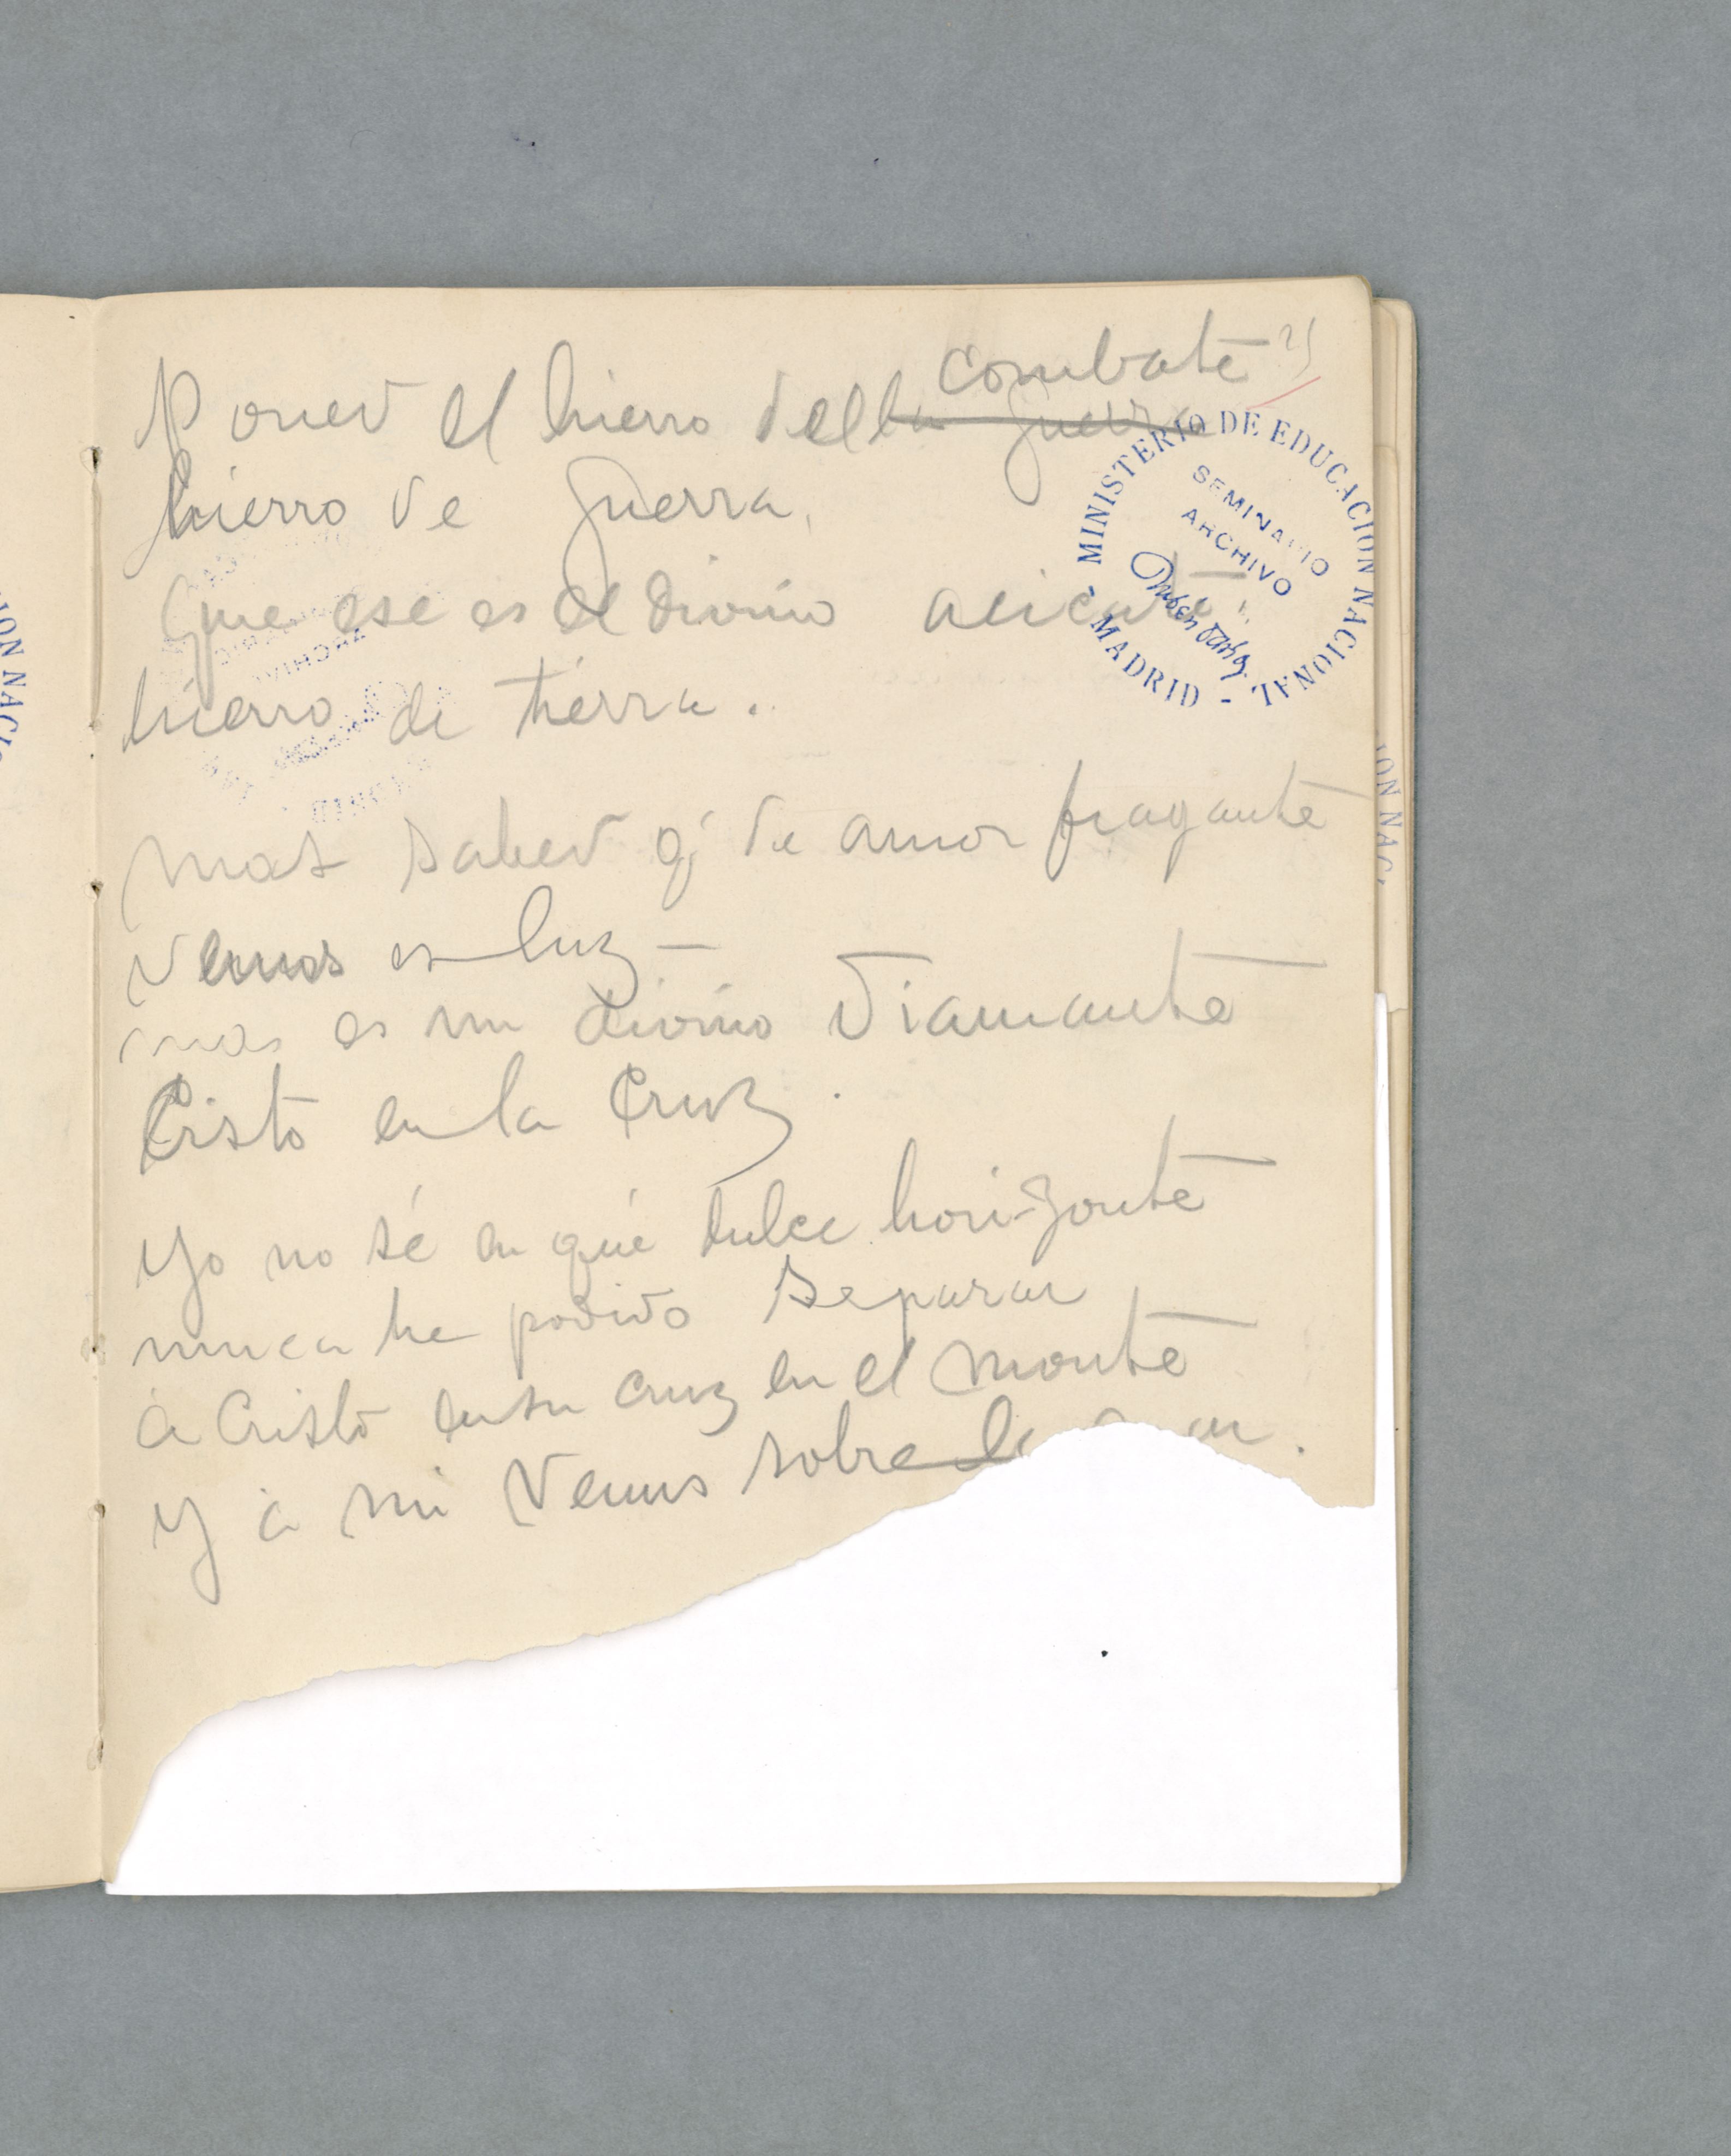 combate
Poned el hierro del la guerra
hierro de guerra,
Que ese es el divino acicate
hierro de tierra.
mas sabed q' de amor fragante
Venus es luz —
mas es un divino diamante
Cristo en la Cruz.
Yo no sé en qué dulce horizonte
nunca he podido separar
á Cristo en su cruz en el monte
Y á mi Venus sobre
MINISTERIO DE EDUCACION NACIONAL
- MADRID -
SEMINARIO
ARCHIVO
Rubén Darío
ION NAC.